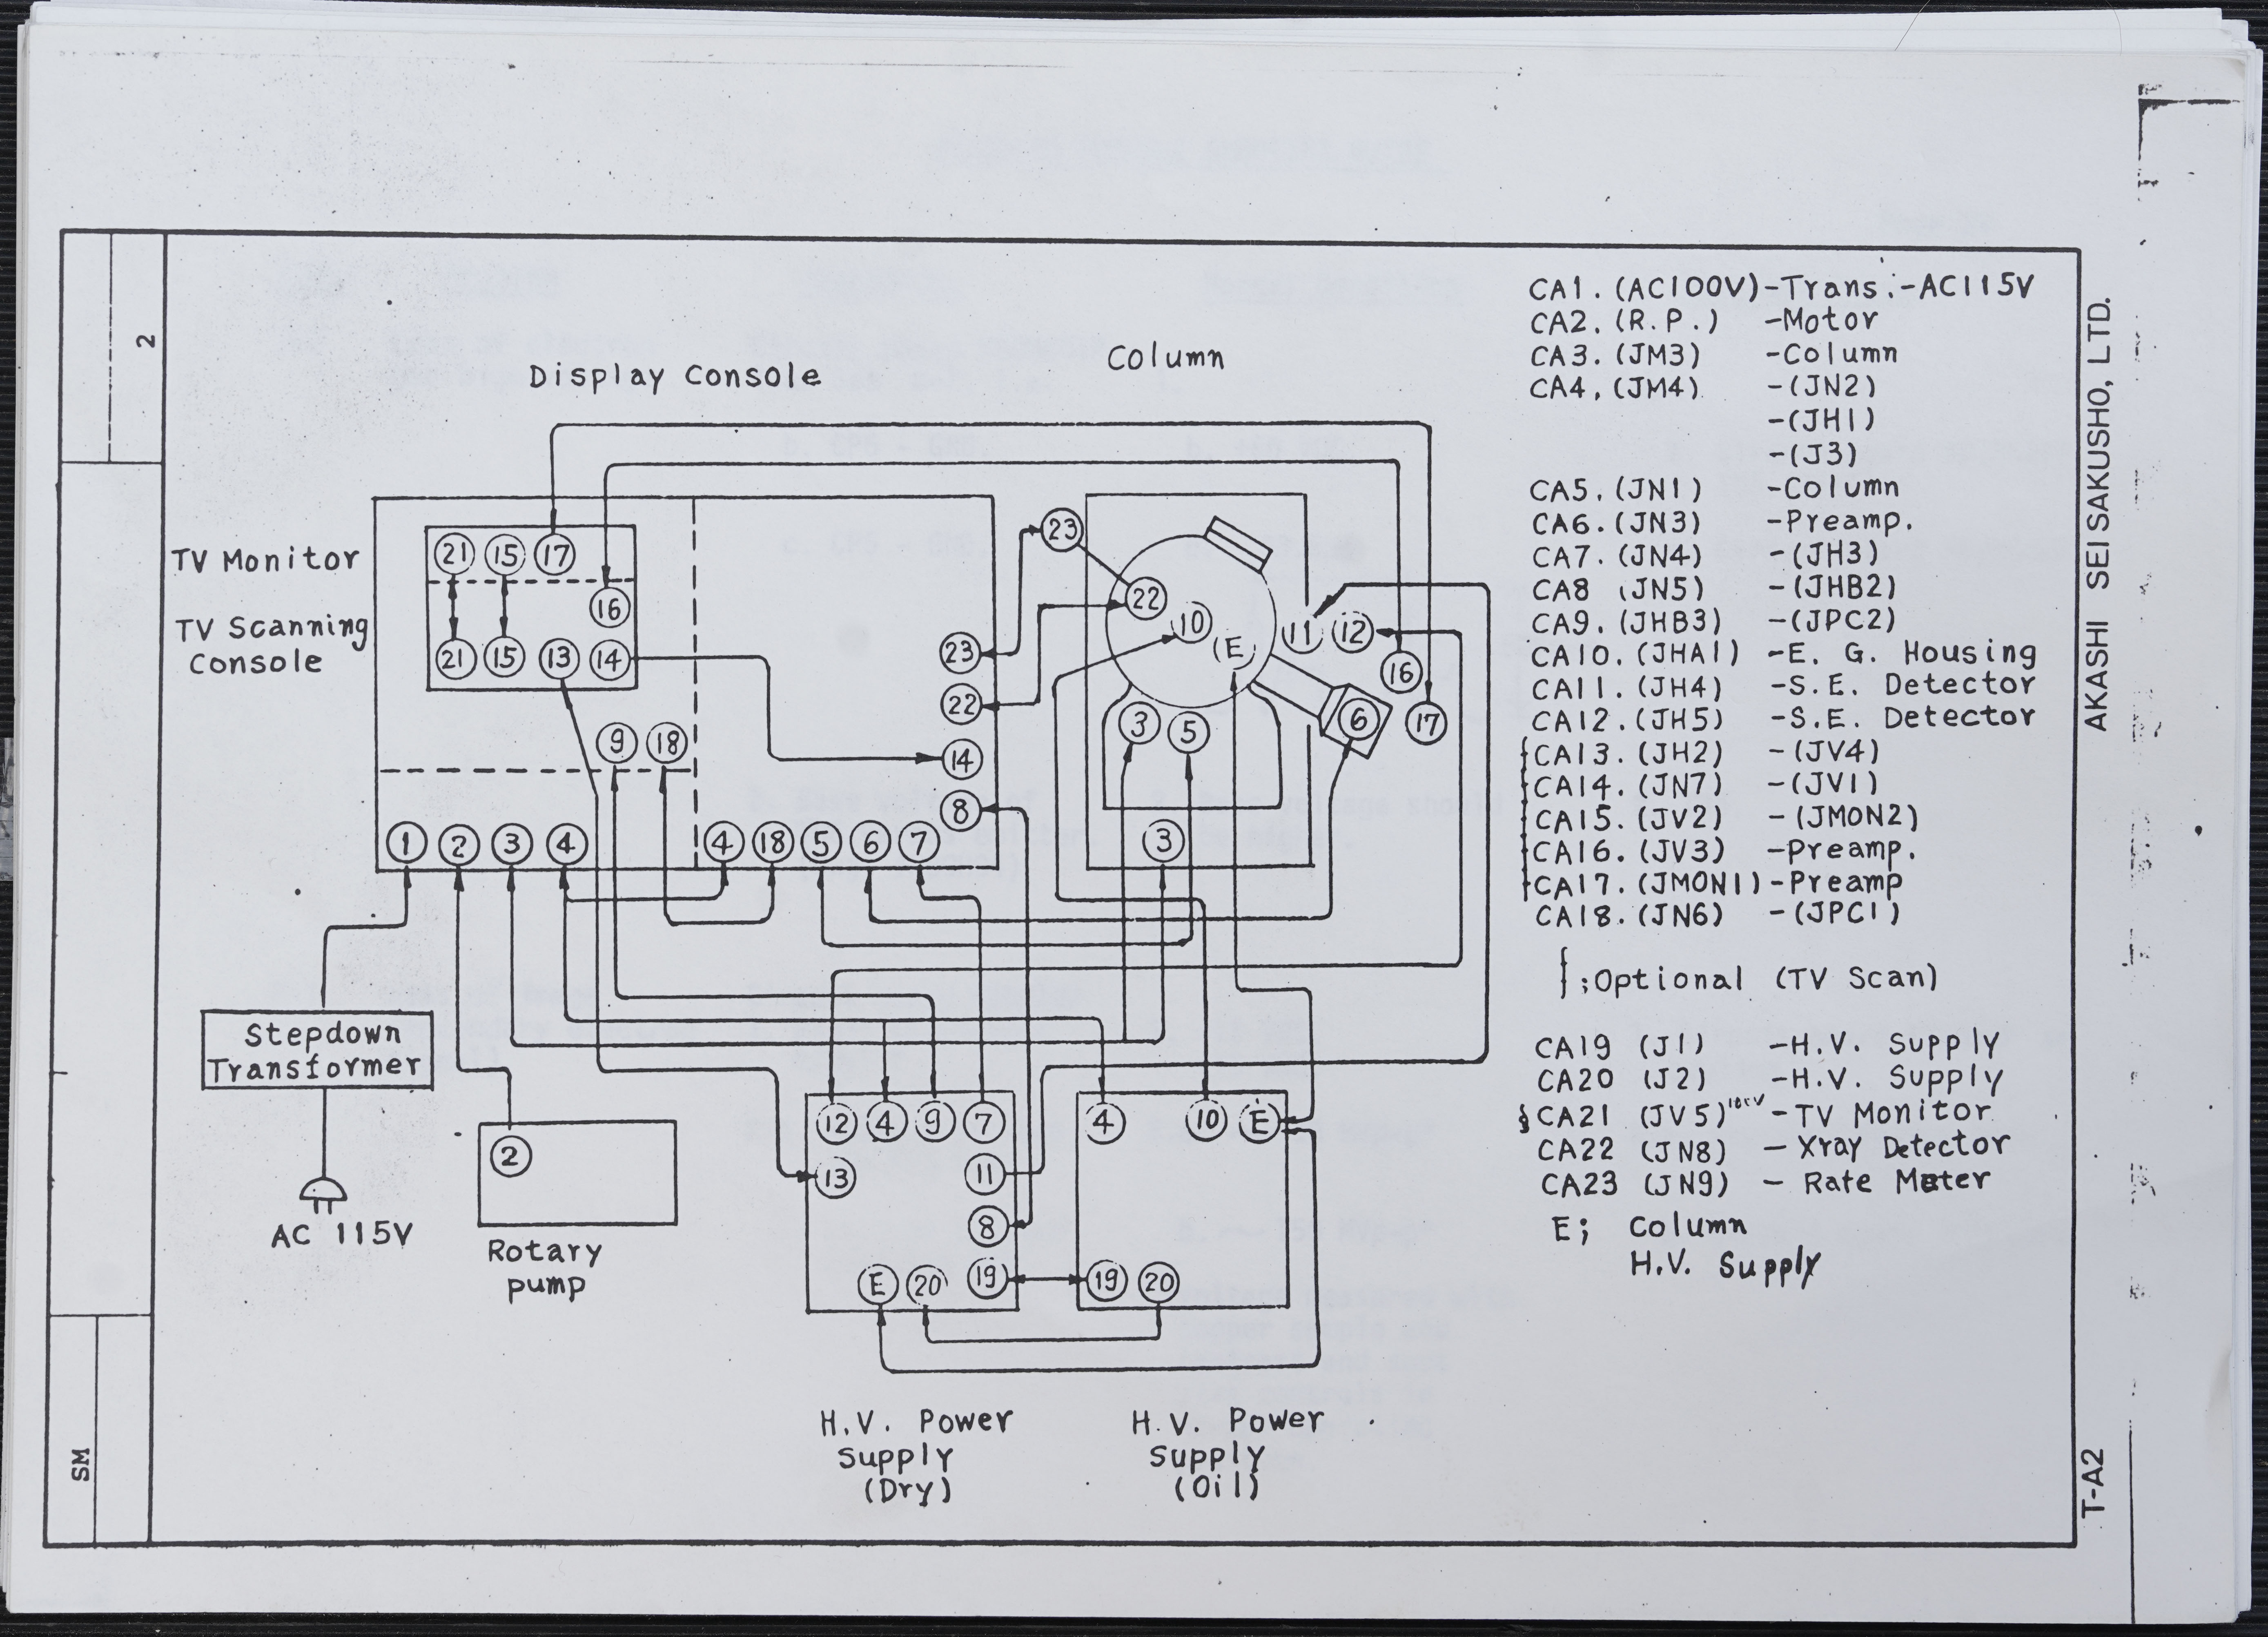 2
Display Console
Column
TV Monitor
TV Scanning
Console
21 15 17
16
21 15 13 14
9 18
1 2 3 4
4 18 5 6 7
23
22
14
8
23
22
10
(E)
11 12
16
17
3 5 6
3
Stepdown
Transformer
AC 115V
2
Rotary
pump
12 4 9 7
13
11
8
E 20 19
4 10 E
19 20
H.V. Power
Supply
(Dry)
H.V. Power
Supply
(Oil)
CA1. (AC100V)-Trans.-AC115V
CA2. (R.P.) -Motor
CA3. (JM3) -Column
CA4, (JM4) -(JN2)
-(JH1)
-(J3)
CA5. (JN1) -Column
CA6. (JN3) -Preamp.
CA7. (JN4) -(JH3)
CA8 (JN5) -(JHB2)
CA9. (JHB3) -(JPC2)
CA10. (JHA1) -E. G. Housing
CA11. (JH4) -S.E. Detector
CA12. (JH5) -S.E. Detector
CA13. (JH2) -(JV4)
CA14. (JN7) -(JV1)
CA15. (JV2) -(JMON2)
CA16. (JV3) -Preamp.
CA17. (JMON1)-Preamp
CA18. (JN6) -(JPC1)
{ ;Optional (TV Scan)
CA19 (J1) -H.V. Supply
CA20 (J2) -H.V. Supply
CA21 (JV5) -TV Monitor
CA22 (JN8) - Xray Detector
CA23 (JN9) - Rate Meter
E; Column
H.V. Supply
AKASHI SEISAKUSHO, LTD.
T-A2
SM